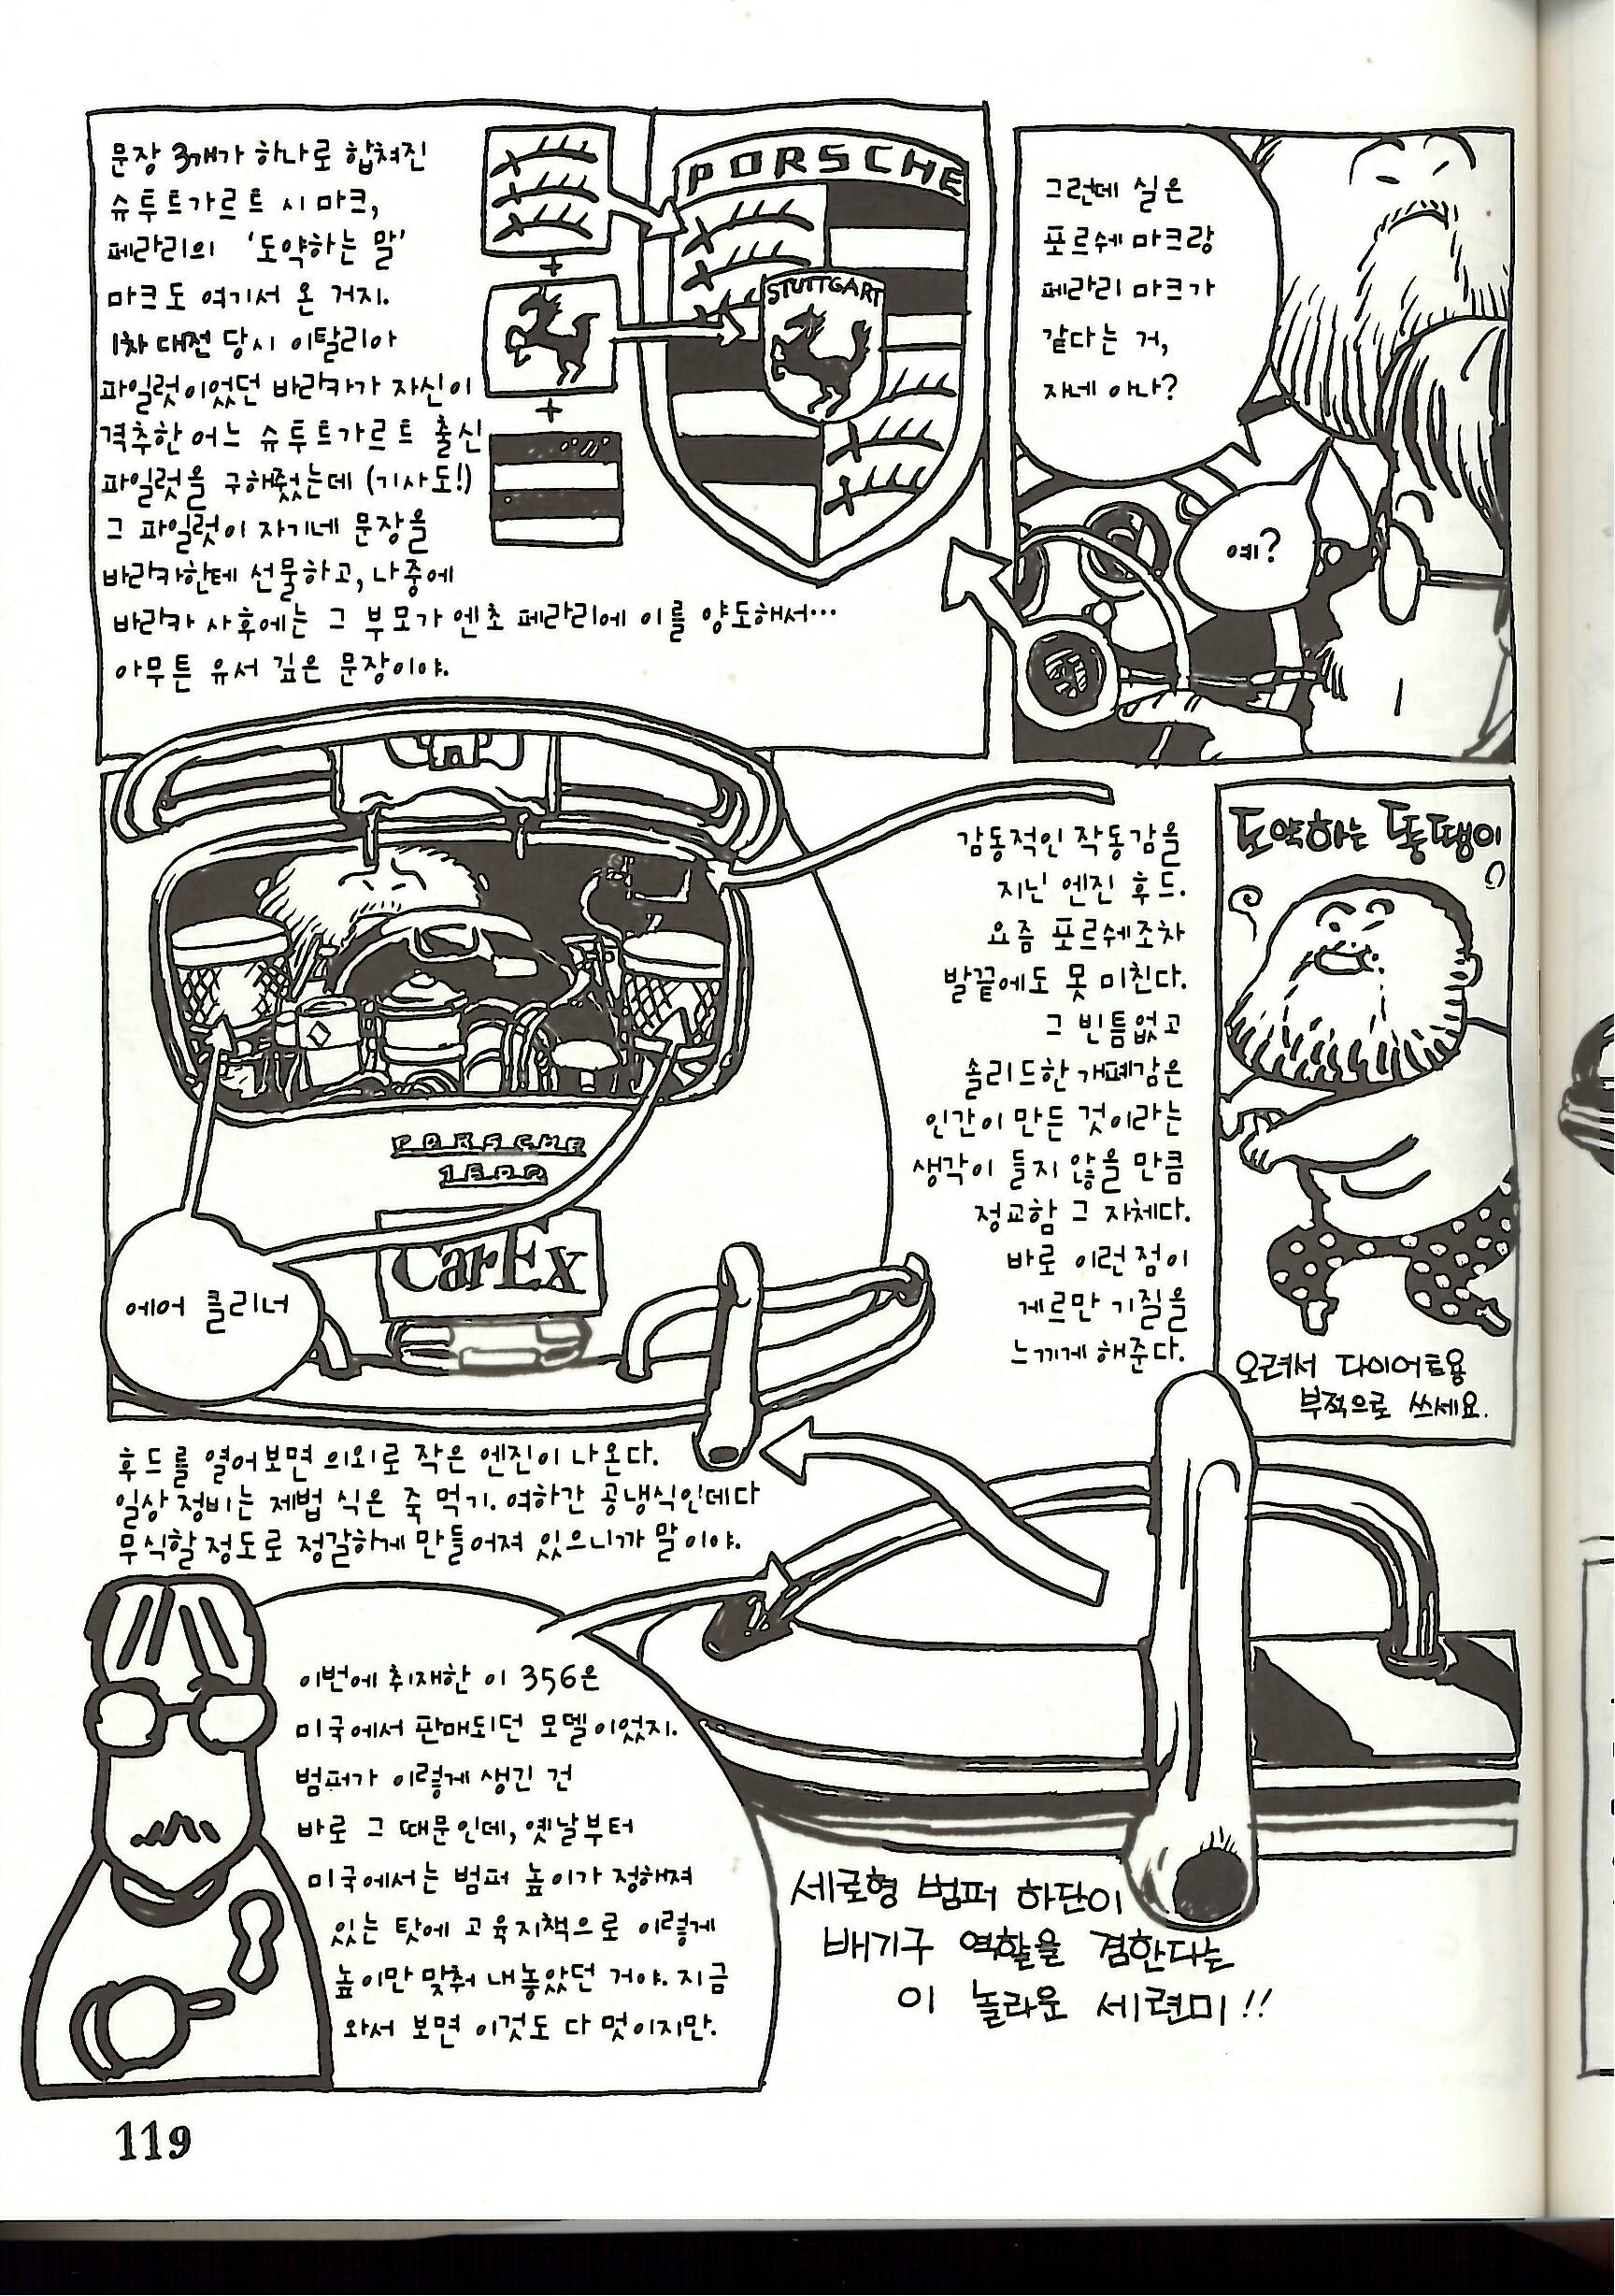 그런데 실은
포르쉐 마크랑
페라리 마크가
같다는 거,
자네 아나?
예?
문장 3개가 하나로 합쳐진
슈투트가르트 시 마크,
페라리의 '도약하는 말'
마크도 여기서 온 거지.
1차 대전 당시 이탈리아
파일럿이었던 바라카가 자신이
격추한 어느 슈투트가르트 출신
파일럿을 구해줬는데 (기사도!)
그 파일럿이 자기네 문장을
바라카한테 선물하고, 나중에
바라카 사후에는 그 부모가 엔초 페라리에 이를 양도해서…
아무튼 유서 깊은 문장이야.
+
+
PORSCHE
STUTTGART
도약하는 똥땡이
오려서 다이어트용
부적으로 쓰세요.
감동적인 작동감을
지닌 엔진 후드.
요즘 포르쉐조차
발끝에도 못 미친다.
그 빈틈없고
솔리드한 개폐감은
인간이 만든 것이라는
생각이 들지 않을 만큼
정교함 그 자체다.
바로 이런 점이
게르만 기질을
느끼게 해준다.
PORSCHE
1500
CarEx
에어 클리너
후드를 열어보면 의외로 작은 엔진이 나온다.
일상 정비는 제법 식은 죽 먹기. 여하간 공냉식인데다
무식할 정도로 정갈하게 만들어져 있으니까 말이야.
이번에 취재한 이 356은
미국에서 판매되던 모델이었지.
범퍼가 이렇게 생긴 건
바로 그 때문인데, 옛날부터
미국에서는 범퍼 높이가 정해져
있는 탓에 고육지책으로 이렇게
높이만 맞춰 내놓았던 거야. 지금
와서 보면 이것도 다 멋이지만.
세로형 범퍼 하단이
배기구 역할을 겸한다는
이 놀라운 세련미!!
119